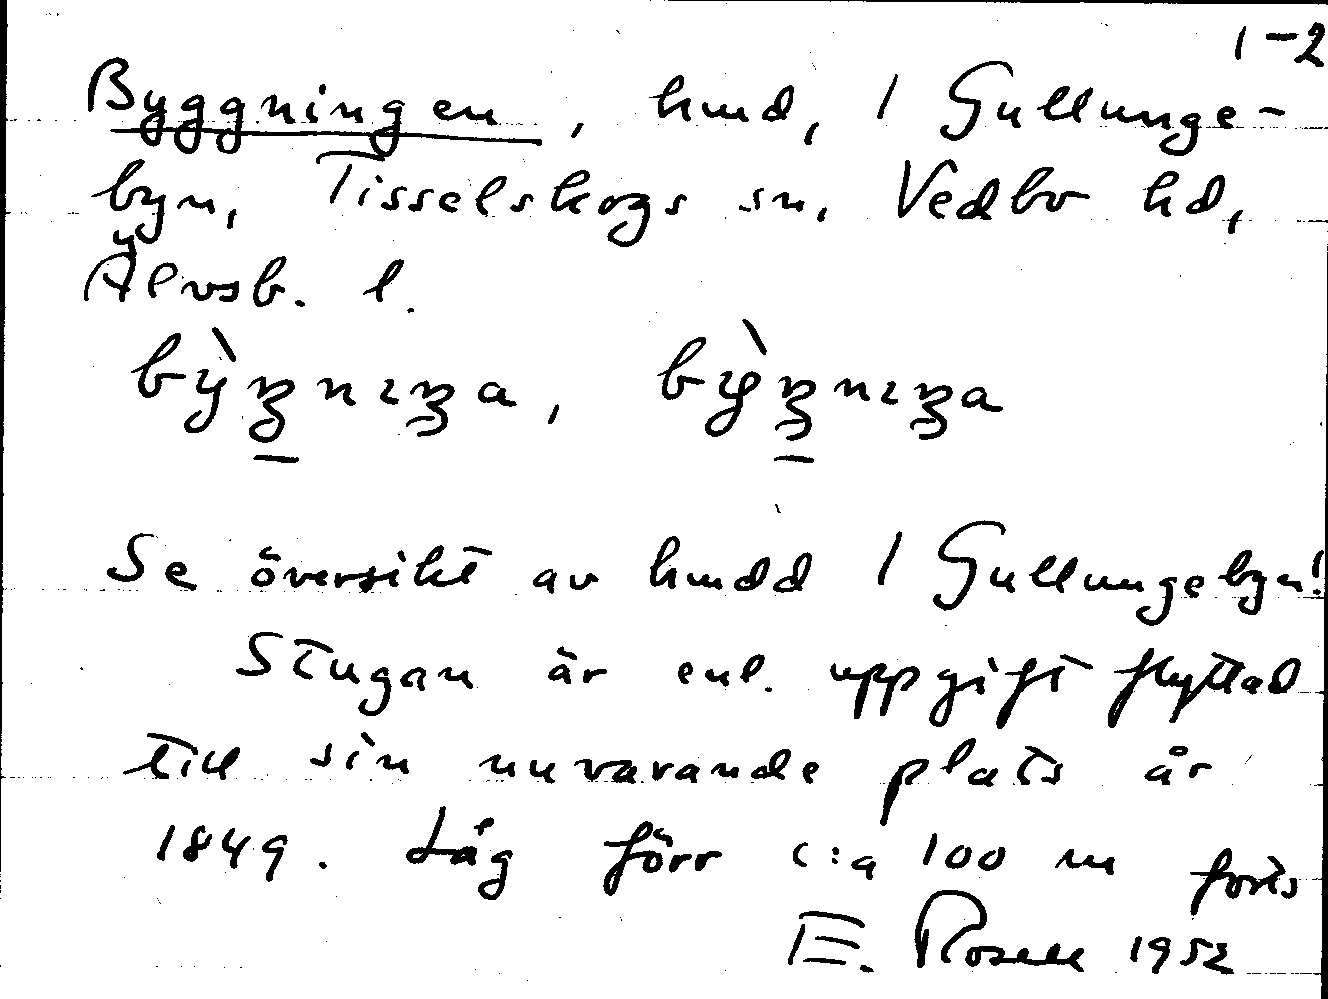 1-2
Byggningen, hmd, 1 Gullunge-
byn, Tisselskogs sn, Vedbo hd,
Älvsb. l.
Se översikt av hmdd 1 Gullungebyn!
Stugan är enl. uppgift flyttad
till sin nuvarande plats år
1849. Låg förr c:a 100 m forts
E. Rosell 1952